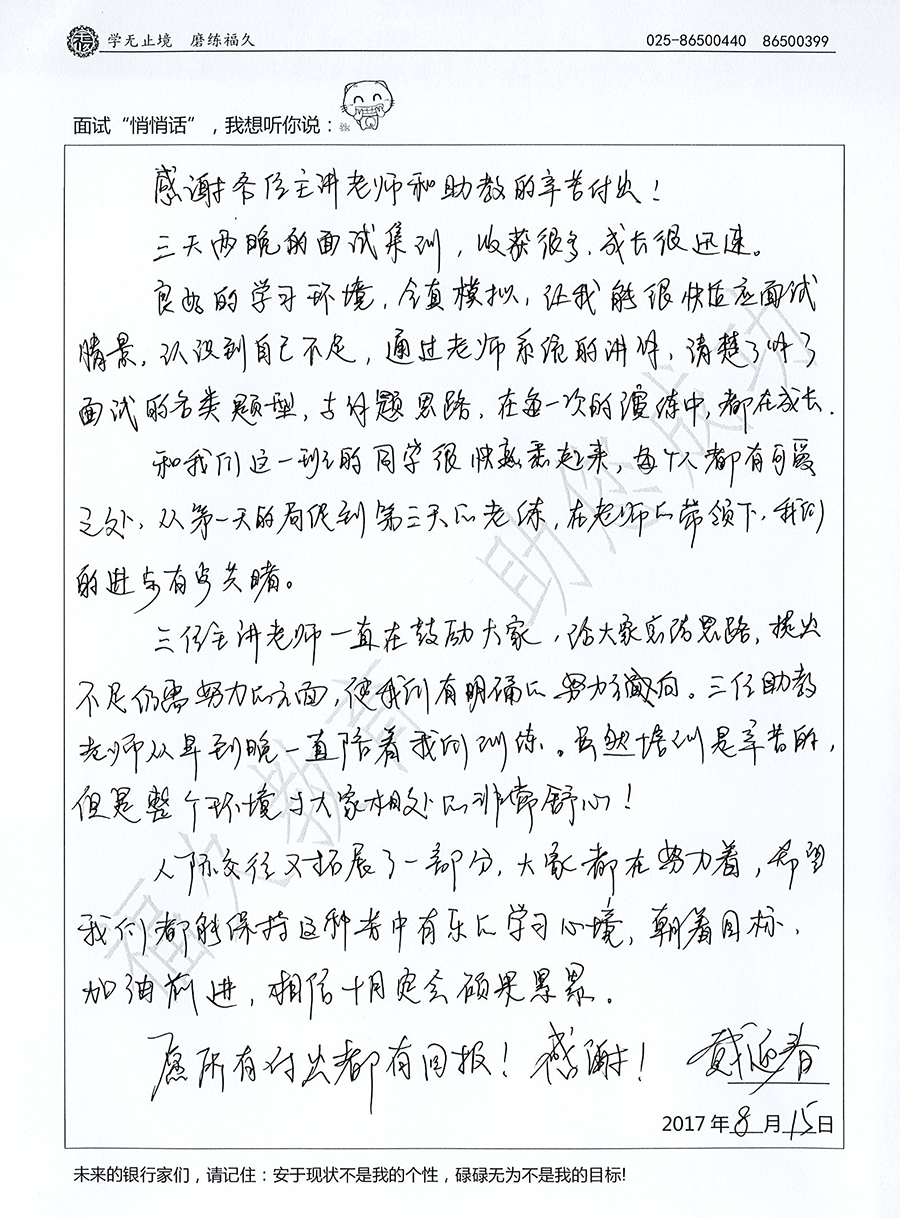 学无止境 磨练福久
025-86500440 86500399
面试“悄悄话”，我想听你说：
感谢各位主讲老师和助教的辛苦付出！
三天两晚的面试集训，收获很多，成长很迅速。
良好的学习环境，全真模拟，让我能很快适应面试
情景，认识到自己不足，通过老师系统的讲解，清楚了解了
面试的各类题型，与付题思路，在每一次的演练中，都在成长.
和我们这一班的同学很快熟悉起来，每个人都有可爱
之处，从第一天的局促到第三天的老练，在老师的带领下，我们
的进步有目共睹。
三位主讲老师一直在鼓励大家，给大家总结思路，提出
不足仍需努力的方面，使我们有明确的努力方向。三位助教
老师从早到晚一直陪着我们训练。虽然培训是辛苦的，
但是整个环境与大家相处的非常舒心！
人际交往又拓展了一部分，大家都在努力着，希望
我们都能保持这种苦中有乐的学习心境，朝着目标，
加油前进，相信十月定会硕果累累。
愿所有付出都有回报！感谢！ 戴迎春
2017年8月15日
未来的银行家们，请记住：安于现状不是我的个性，碌碌无为不是我的目标!
福久教育 助您成功